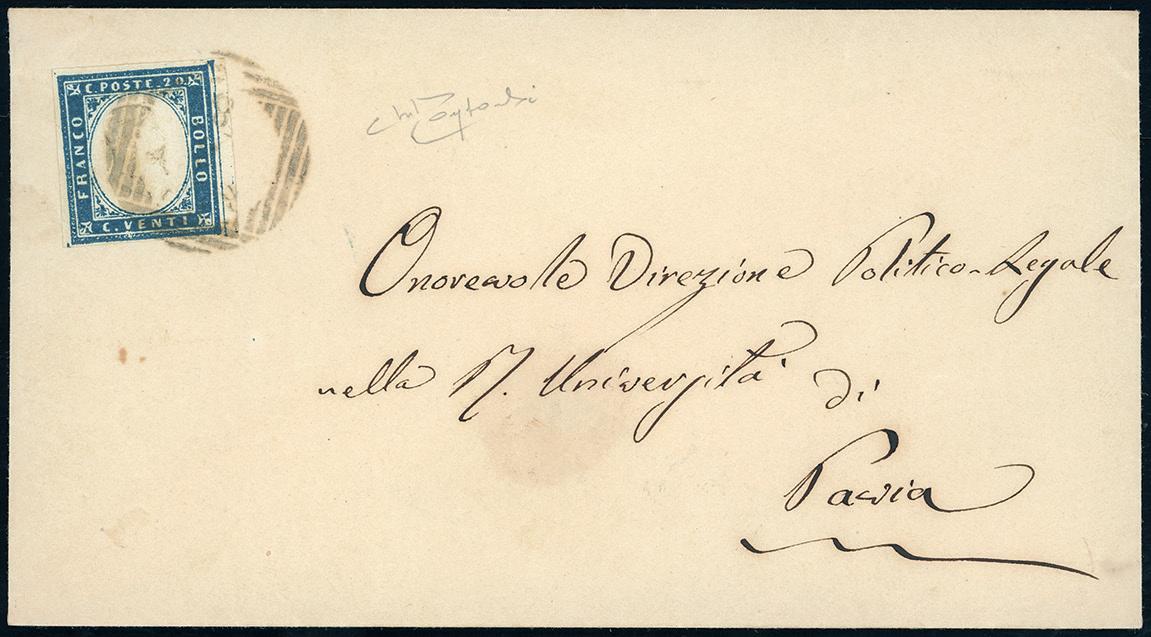 C. POSTE 20.
FRANCO
BOLLO
C. VENTI
Onorevole Direzione Politico-Legale
nella R. Università di
Pavia